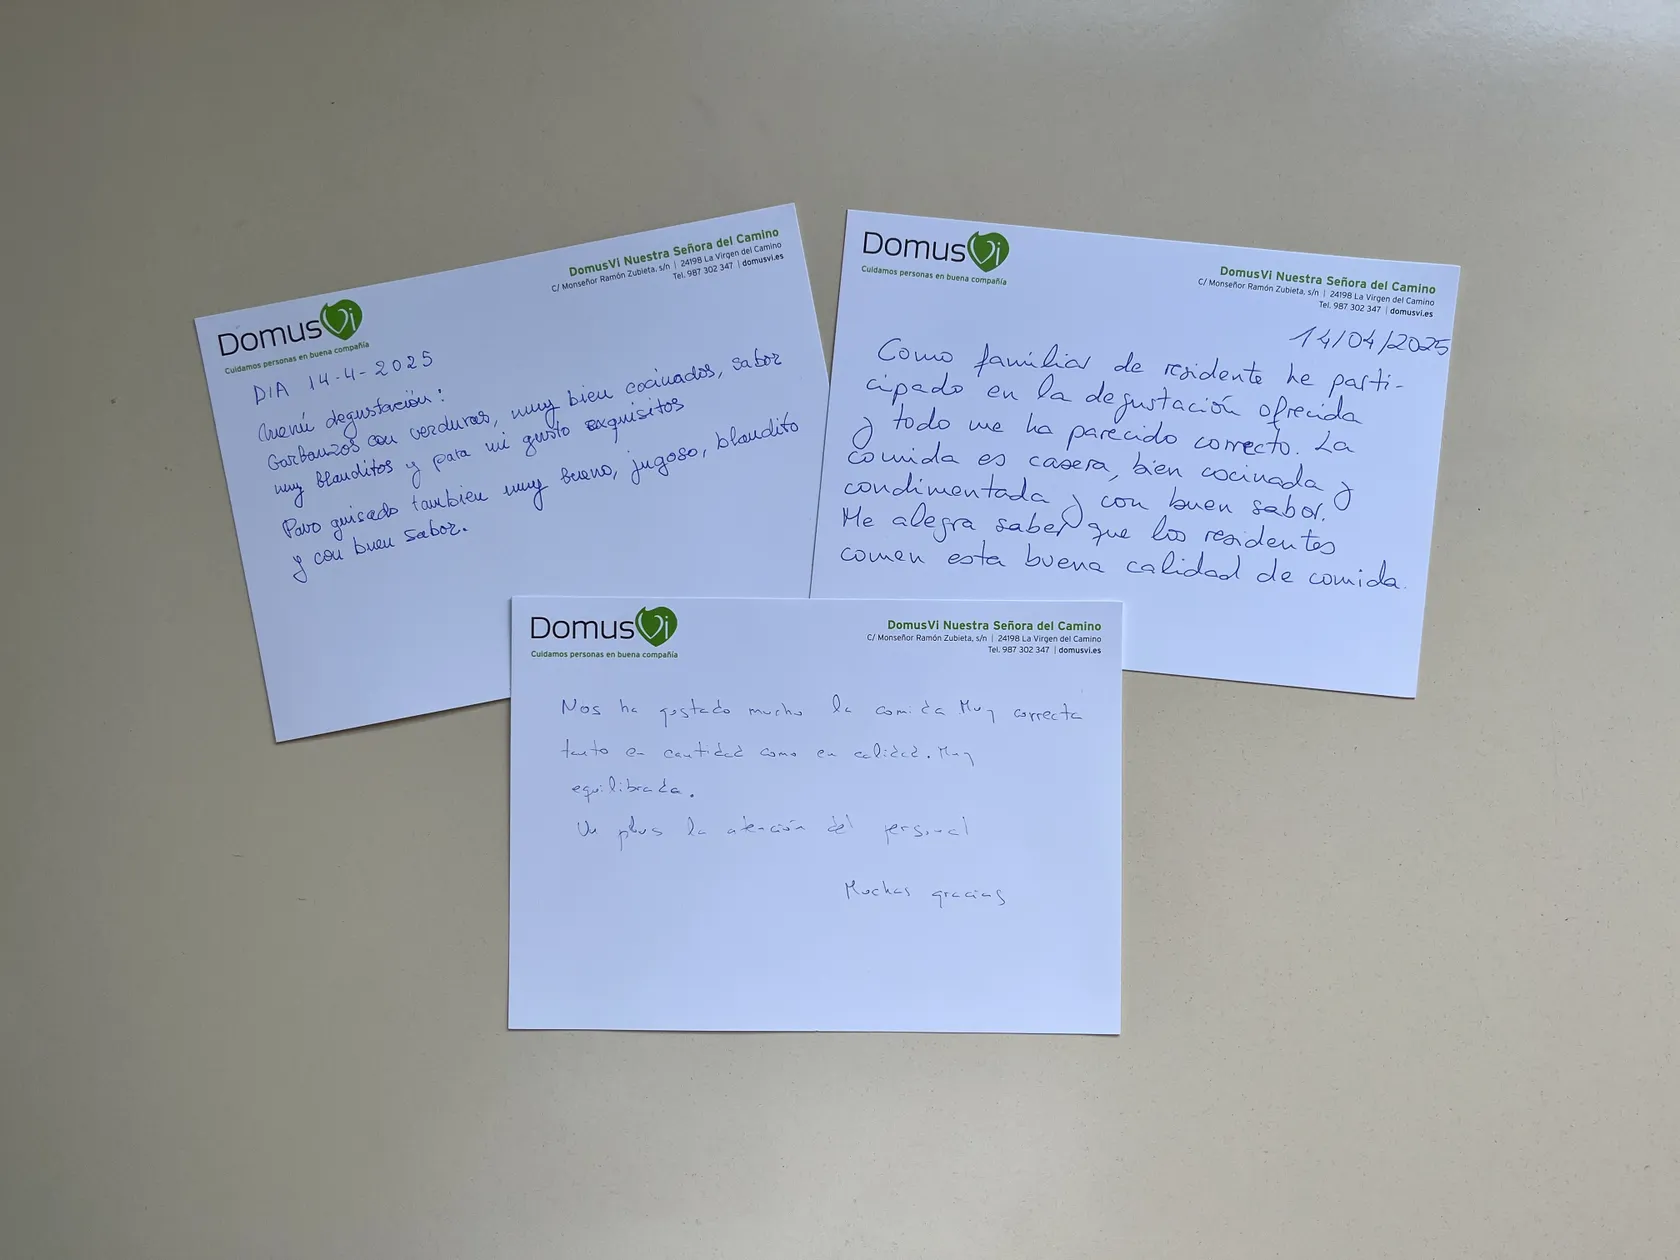 DomusVi
Cuidamos personas en buena compañía
DomusVi Nuestra Señora del Camino
C/ Monseñor Ramón Zubieta, s/n | 24198 La Virgen del Camino
Tel. 987 302 347 | domusvi.es
DIA 14-4-2025
Menú degustación:
Garbanzos con verduras, muy bien cocinados, sabor
muy blanditos y para mi gusto exquisitos
Pavo guisado tambien muy bueno, jugoso, blandito
y con buen sabor.
DomusVi
Cuidamos personas en buena compañía
DomusVi Nuestra Señora del Camino
C/ Monseñor Ramón Zubieta, s/n | 24198 La Virgen del Camino
Tel. 987 302 347 | domusvi.es
14/04/2025
Como familiar de residente he parti-
cipado en la degustación ofrecida
y todo me ha parecido correcto. La
comida es casera, bien cocinada y
condimentada y con buen sabor.
Me alegra saber que los residentes
comen esta buena calidad de comida.
DomusVi
Cuidamos personas en buena compañía
DomusVi Nuestra Señora del Camino
C/ Monseñor Ramón Zubieta, s/n | 24198 La Virgen del Camino
Tel. 987 302 347 | domusvi.es
Nos ha gustado mucho la comida Muy correcta
tanto en cantidad como en calidad. Muy
equilibrada.
Un plus la atención del personal
Muchas gracias